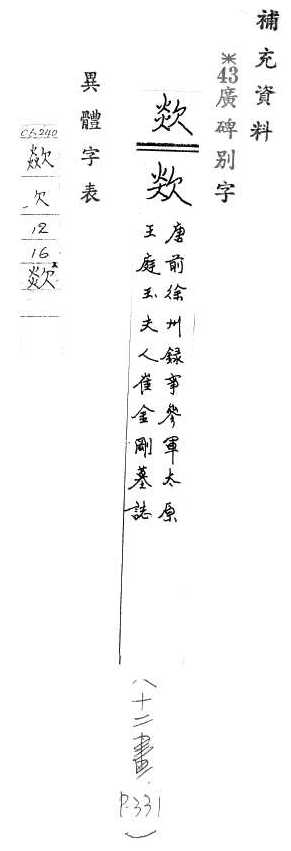 補充資料
※43廣碑别字
歘
欻
唐前徐州録事參軍太原
王庭玉夫人崔金剛墓誌
八十二畫
P.331
異體字表
歘
欠
12
16
欻